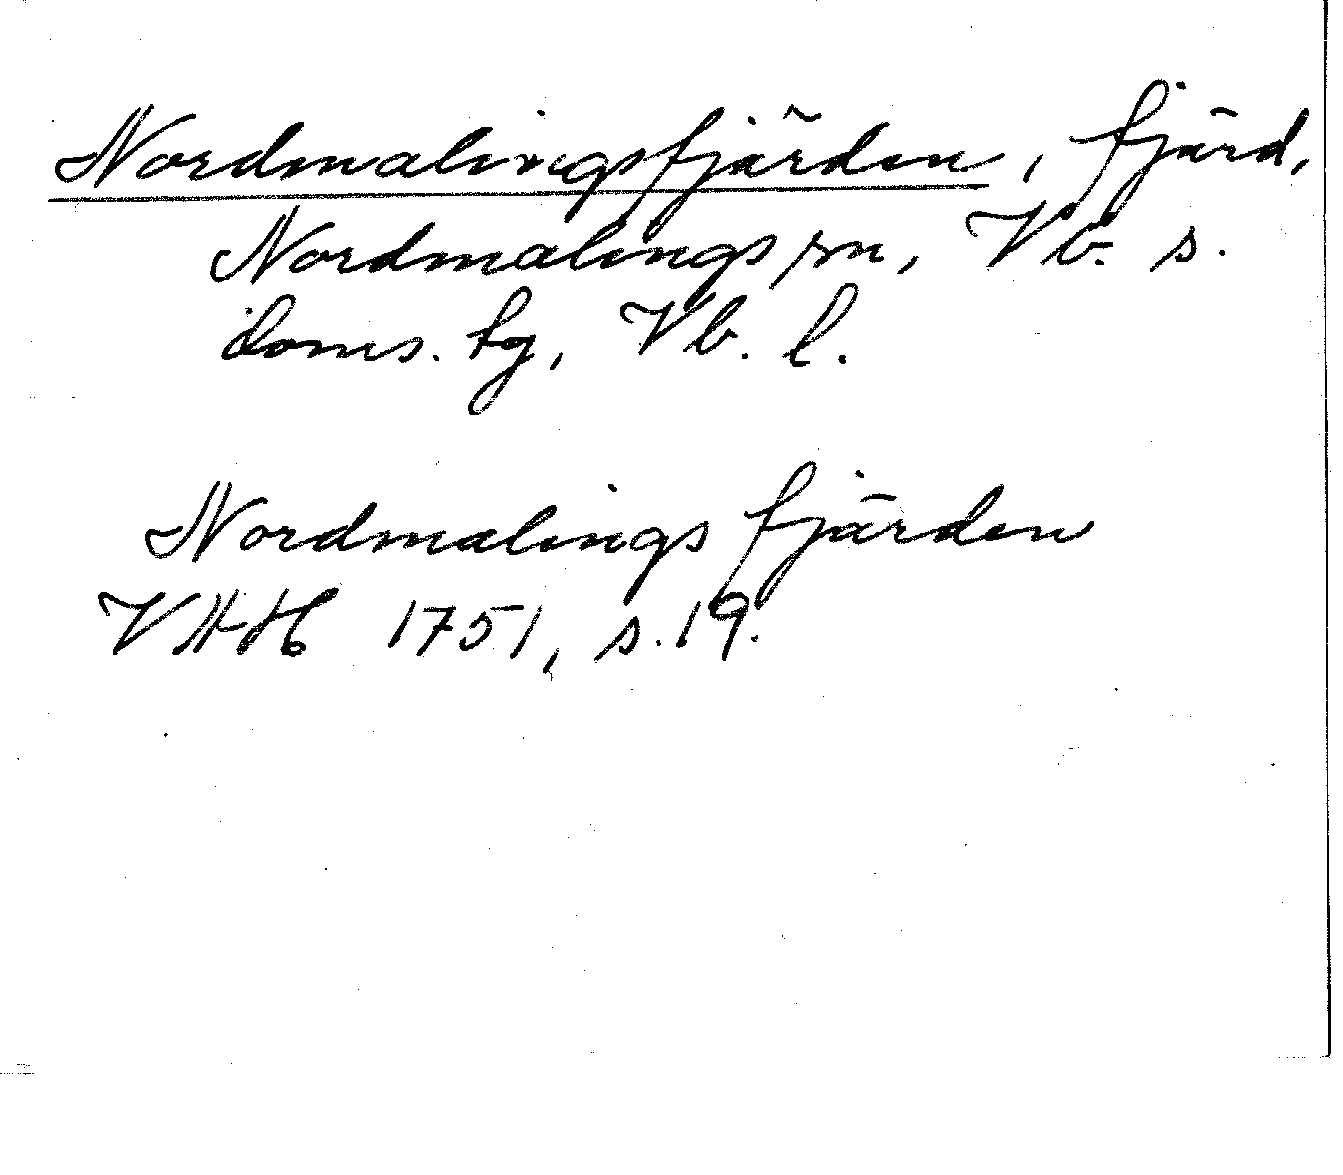 Nordmalingsfjärden, fjärd,
Nordmalings sn, Vb. s.
doms. tg, Vb. l.
Nordmalings fjärden
VHH 1751, s. 19.